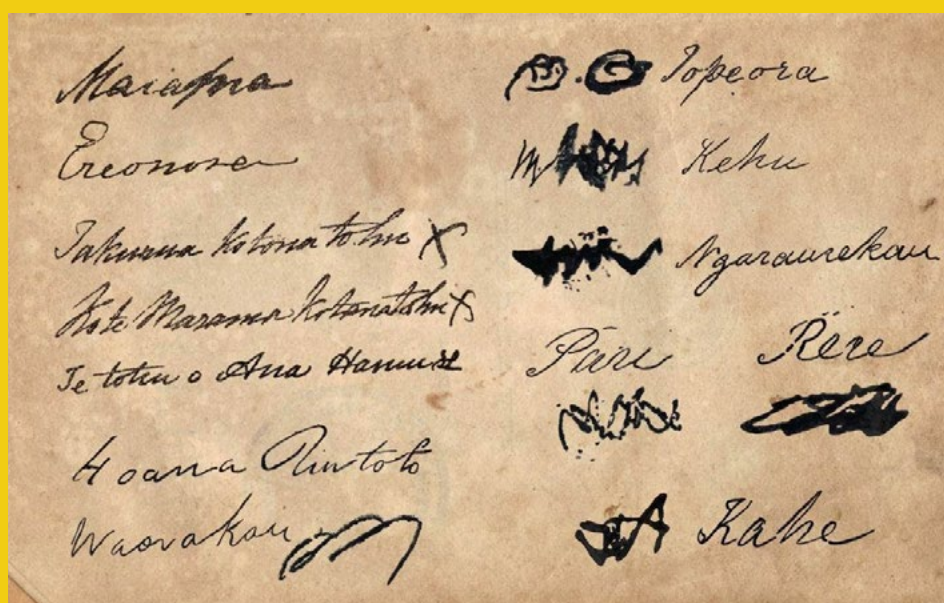 Ereonora
Takurua Kotona tohu x
Ko te Marama Kotonatohu x
Te tohu o Ana Hamu x
Hoana Riutoto
Topeora
Kehu
Ngaraurekau
Rere
Kahe